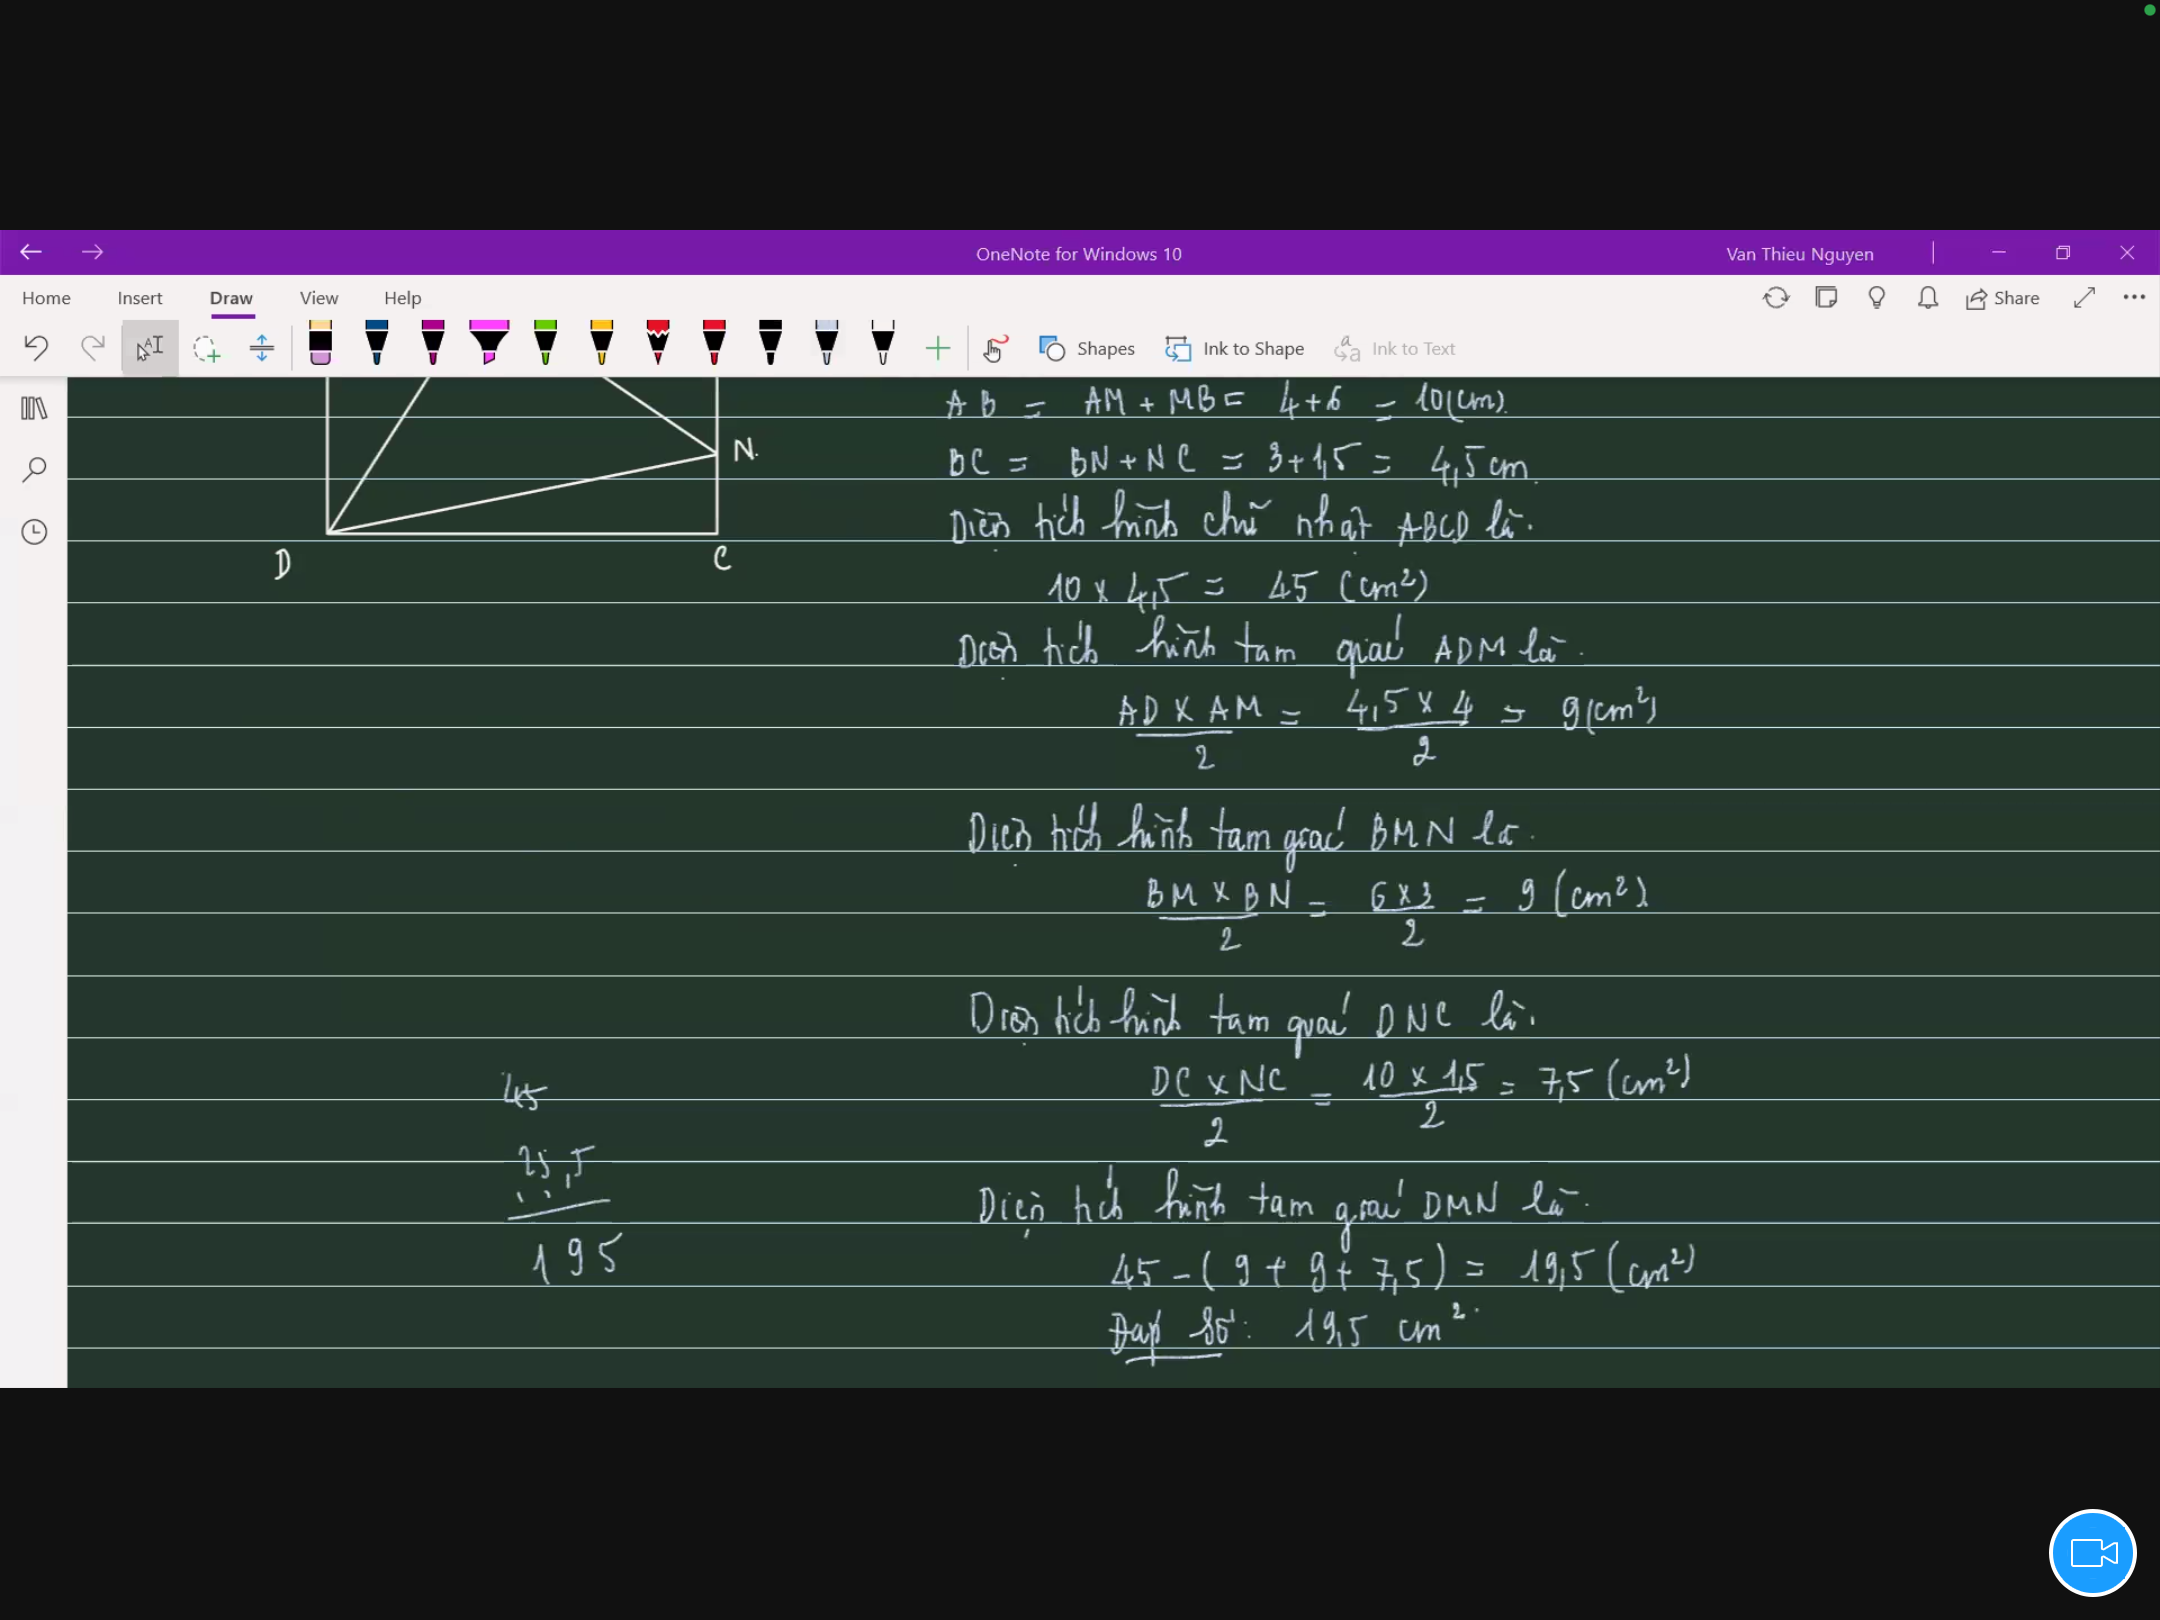 OneNote for Windows 10
Van Thieu Nguyen
Home Insert Draw View Help
Share
Shapes
Ink to Shape
Ink to Text
AB = AM + MB = 4 + 6 = 10 (cm).
N.
BC = BN + NC = 3 + 1,5 = 4,5 cm.
Diện tích hình chữ nhật ABCD là.
D
C
10 x 4,5 = 45 (cm²)
Diện tích hình tam giác ADM là.
AD x AM / 2 = 4,5 x 4 / 2 = 9 (cm²)
Diện tích hình tam giác BMN là.
BM x BN / 2 = 6 x 3 / 2 = 9 (cm²)
Diện tích hình tam giác DNC là.
DC x NC / 2 = 10 x 1,5 / 2 = 7,5 (cm²)
45
25,5
195
Diện tích hình tam giác DMN là.
45 - (9 + 9 + 7,5) = 19,5 (cm²)
Đáp số: 19,5 cm².